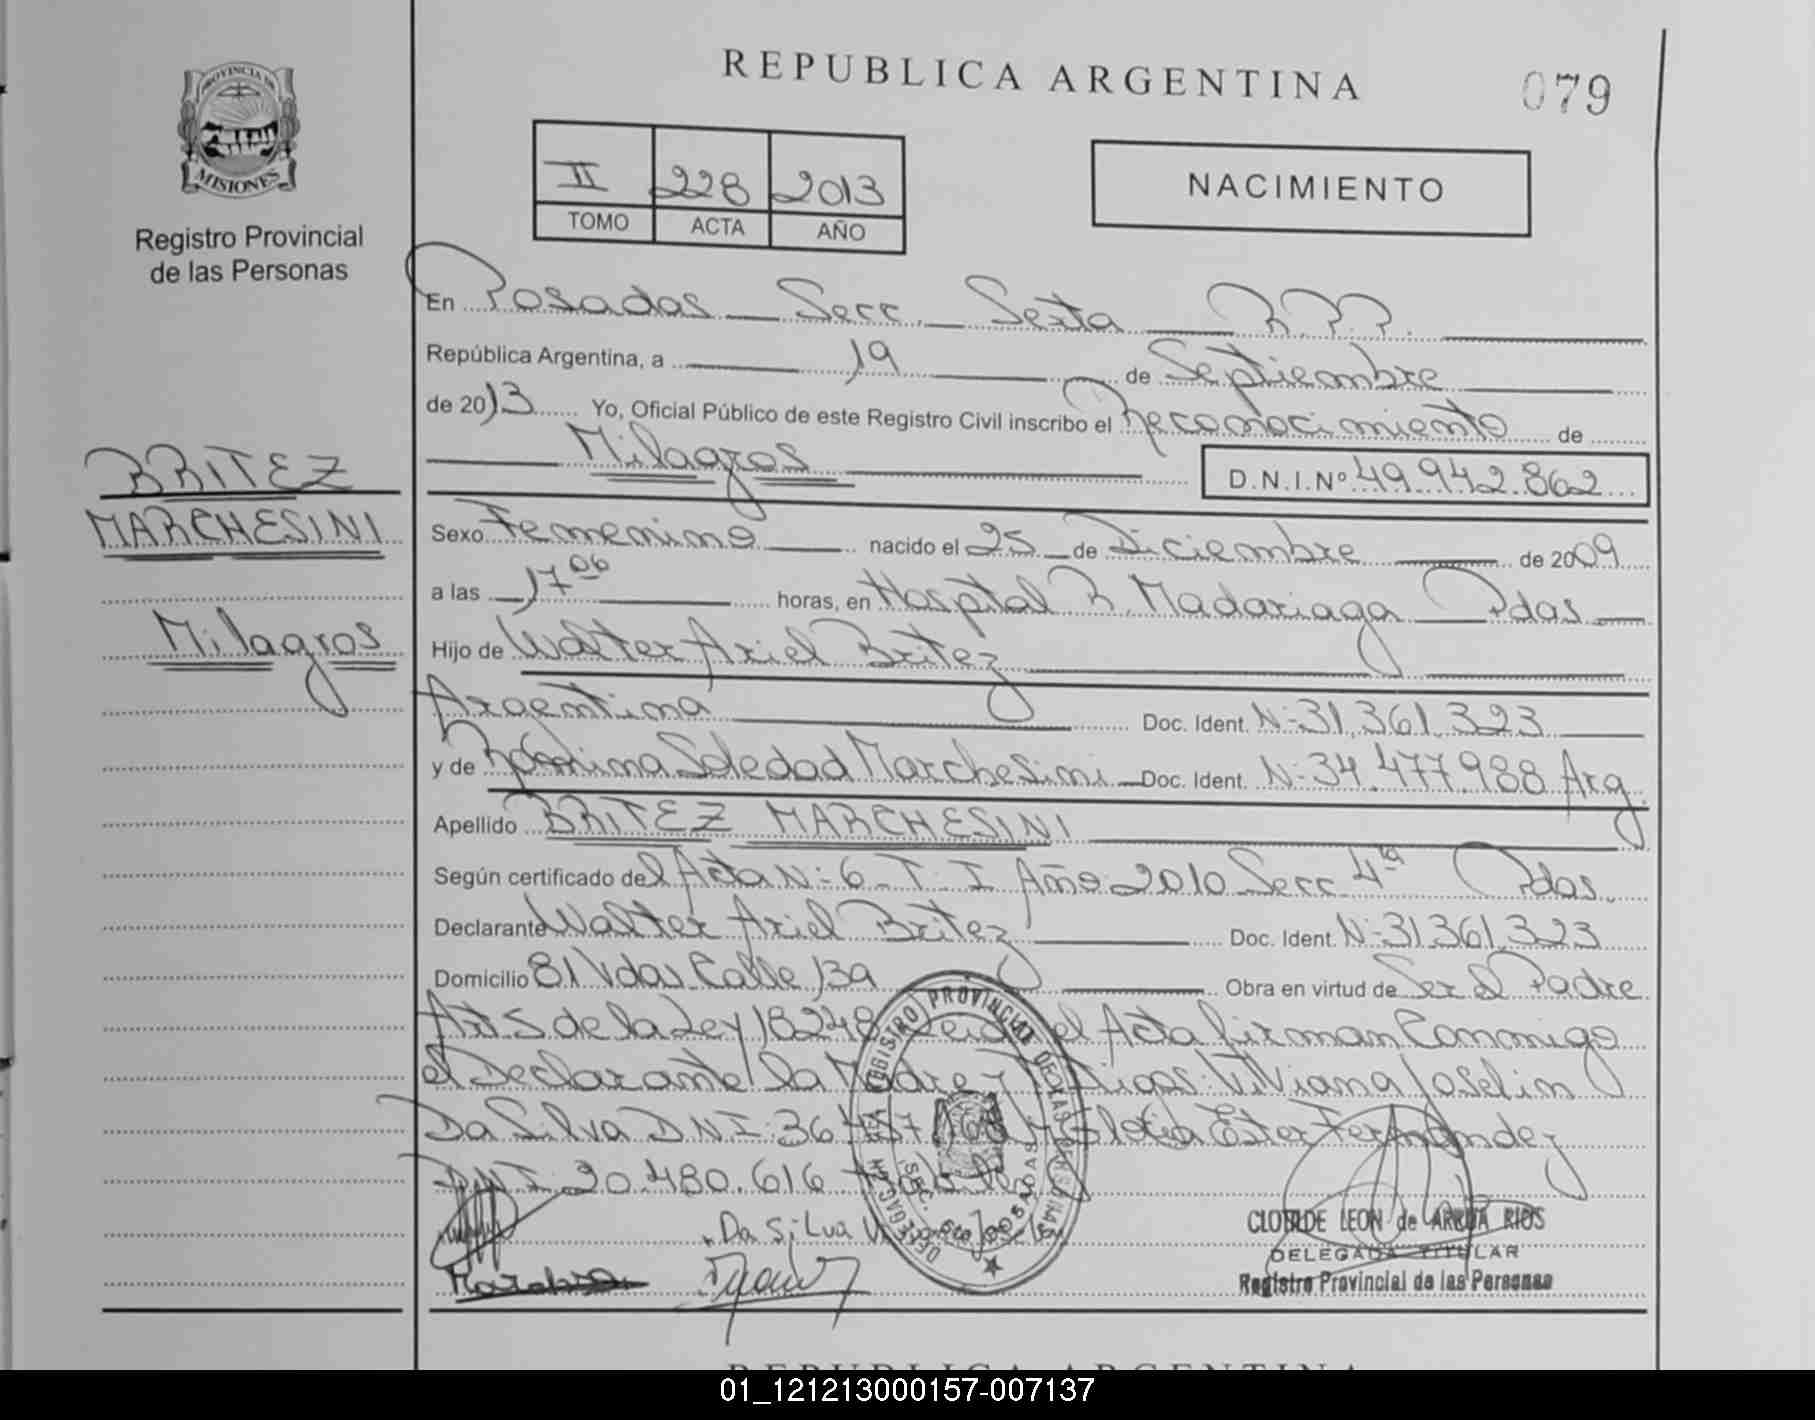 REPUBLICA ARGENTINA
079
PROVINCIA DE
MISIONES
Registro Provincial
de las Personas
II 228 2013
TOMO ACTA AÑO
NACIMIENTO
En Posadas Secc. Sexta R.P.P.
República Argentina, a 19 de Septiembre
de 2013 Yo, Oficial Público de este Registro Civil inscribo el Reconocimiento de
Milagros D.N.I.Nº 49.942.862
BRITEZ
MARCHESINI
Milagros
Sexo Femenino nacido el 25 de Diciembre de 2009
a las 17 06 horas, en Hospital R. Madariaga Pdas
Hijo de Walter Ariel Britez
Argentina Doc. Ident. N: 31.361.323
y de Soledad Marchesini Doc. Ident. N: 34.477.988 Arg
Apellido BRITEZ MARCHESINI
Según certificado del Acta N: 6 T. I Año 2010 Secc 4ta Pdas.
Declarante Walter Ariel Britez Doc. Ident. N: 31.361.323
Domicilio 81 Vdas Calle 139 Obra en virtud de Ser el Padre
Art 5 de la Ley 18248 Leida el Acta firman Conmigo
el Declarante la Madre y Testigos: Viviana Joselin
Da Silva DNI 36 y Gloria Ester Fernandez
DNI 20.480.616
Da Silva
REGISTRO PROVINCIAL DE LAS PERSONAS
DELEGACION
SEC. 6ta POSADAS
CLOTILDE LEON de ARRUA RIOS
DELEGADA TITULAR
Registro Provincial de las Personas
REPUBLICA ARGENTINA
01_121213000157-007137